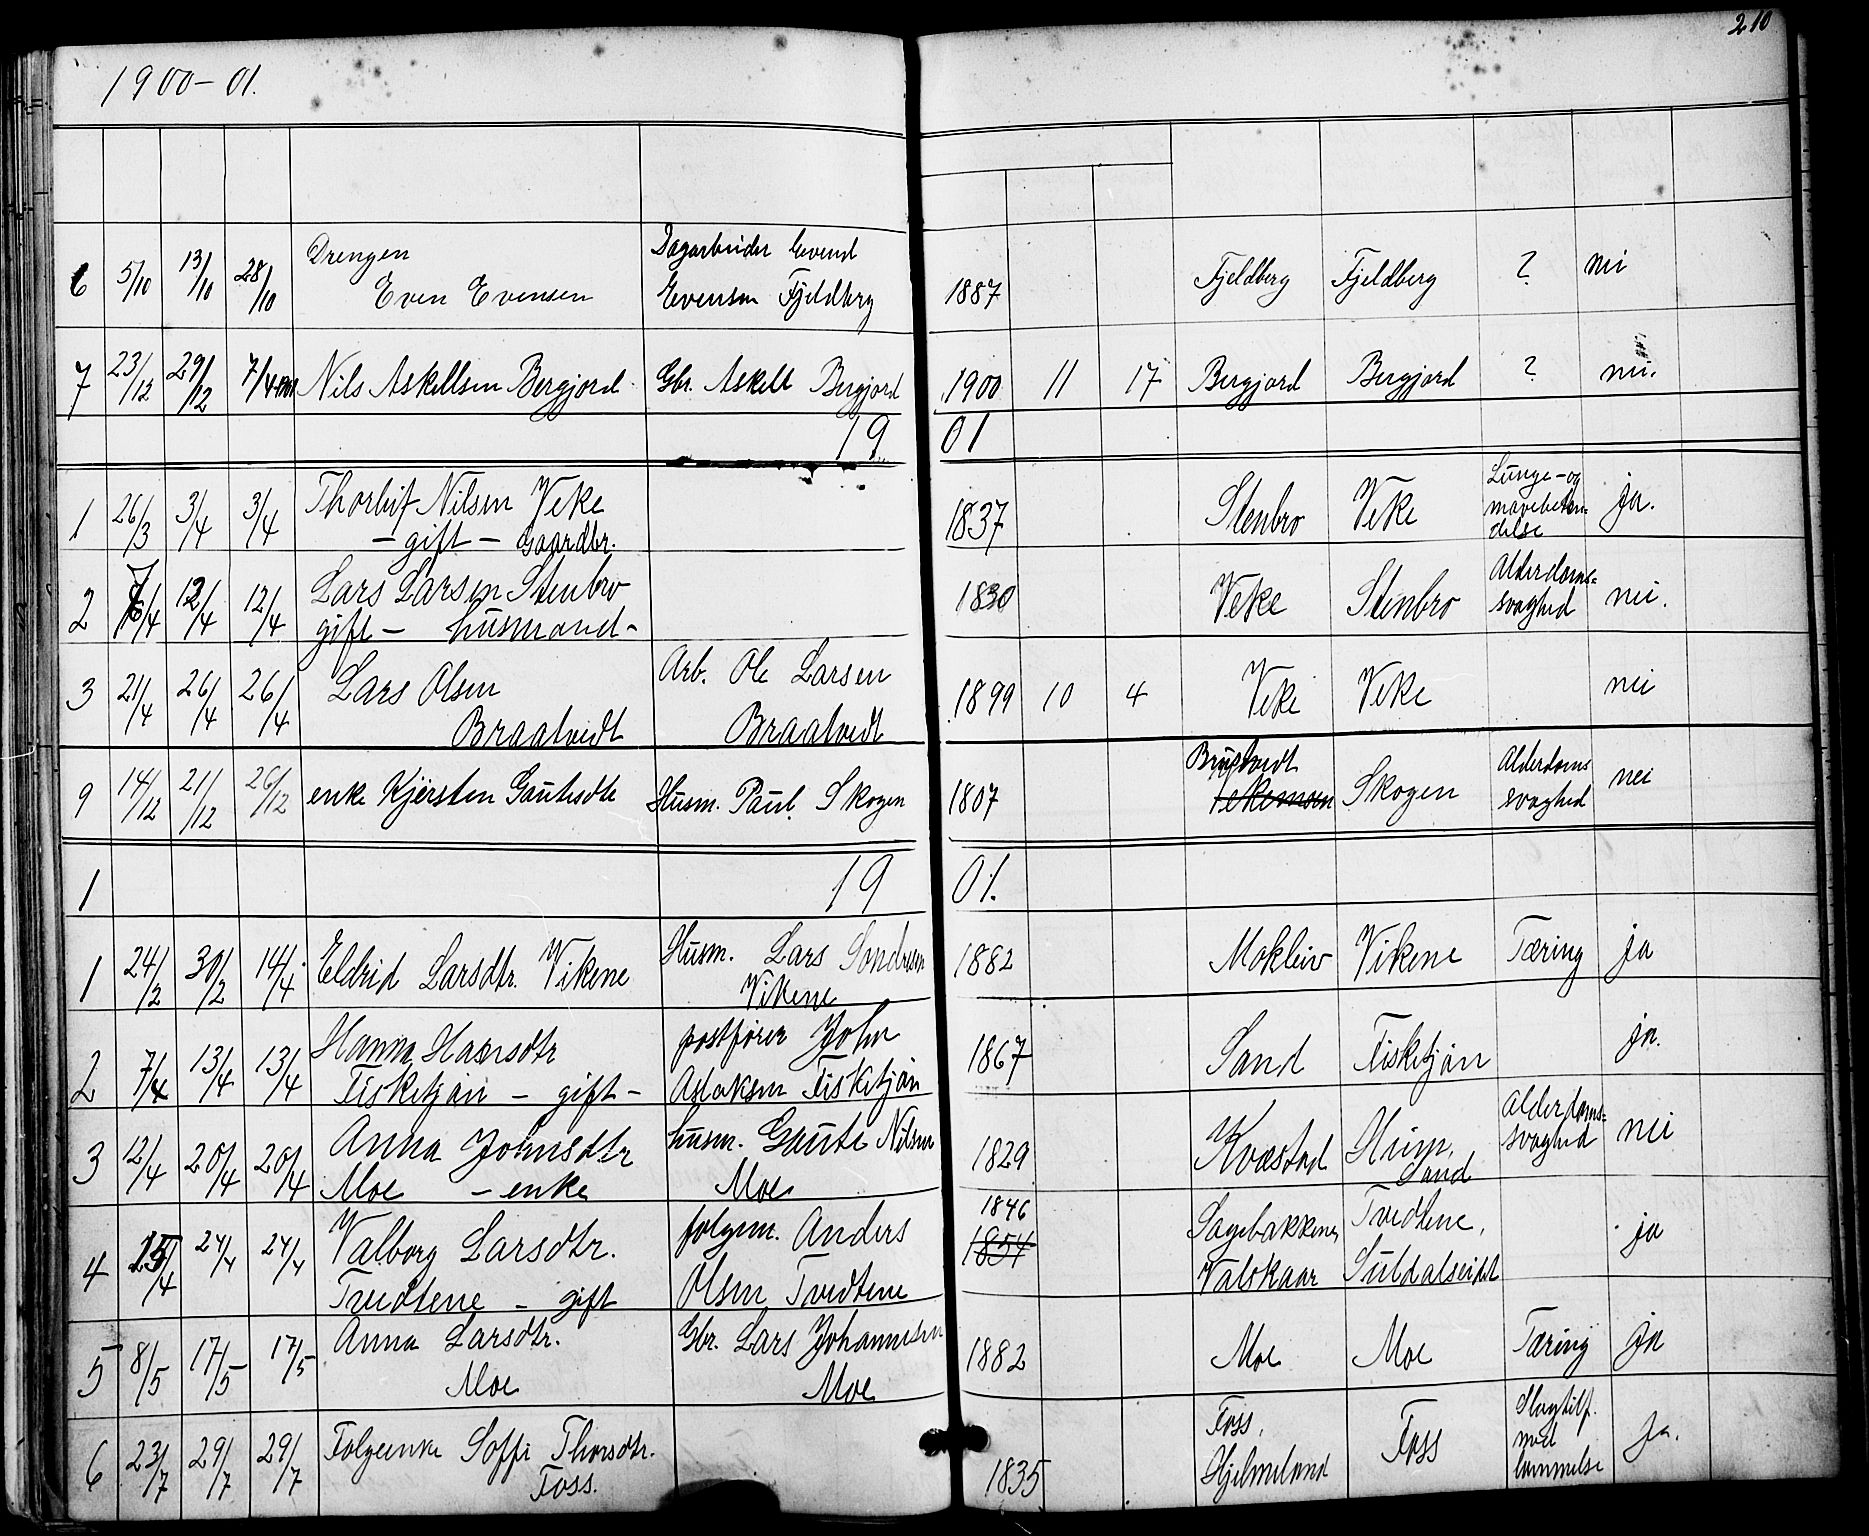 1900-01.
210
6 5/10 13/10 28/10 Drengen Even Evensen Dagarbeider Evend Evensen Fjeldberg 1887 Fjeldberg Fjeldberg ? nei
7 23/12 29/12 7/4 1901 Nils Askellsen Bergjord Gbr. Askell Bergjord 1900 11 17 Bergjord Bergjord ? nei.
1901
1 26/3 3/4 3/4 Thorleif Nilsen Veke - gift - Gaardbr. 1837 Stenbro Veke Lunge- og mavebeten-delse ja.
2 7/4 12/4 12/4 Lars Larsen Stenbro gift - husmand - 1830 Veke Stenbro Alderdoms-svaghed nei.
3 21/4 26/4 26/4 Lars Olsen Braatvedt Arb. Ole Larsen Braatvedt 1899 10 4 Veke Veke nei
9 14/12 21/12 26/12 enke Kjersten Gautesdtr Husm. Paul Skogen 1807 Skogen Alderdoms svaghed nei
1 1901.
1 24/2 30/2 14/4 Eldrid Larsdtr. Vikene Husm. Lars Sondresen Vikene 1882 Mokleiv Vikene Tæring ja
2 7/4 13/4 13/4 Hanna Hansdtr Fisketjøn - gift - postfører John Aslaksen Fisketjøn 1867 Sand Fisketjøn ja.
3 12/4 20/4 20/4 Anna Johnsdtr Moe - enke husm. Gaute Nilsen Moe 1829 Kvæstad Heim, Sand Alderdoms-svaghed nei
4 15/4 24/4 24/4 Valborg Larsdtr. Tvedtene - gift folgem. Anders Olsen Tvedtene 1846 1854 Sagebakkene, Valskaar Tvedtene, Suldalseidet ja
5 8/5 17/5 17/5 Anna Larsdtr. Moe Gbr. Lars Johannesen Moe 1882 Moe Moe Tæring ja
6 23/7 29/7 29/7 Folgeenke Soffi Thorsdtr. Foss. 1835 Foss, Hjelmeland Foss Slagtilf. med lammelse ja.